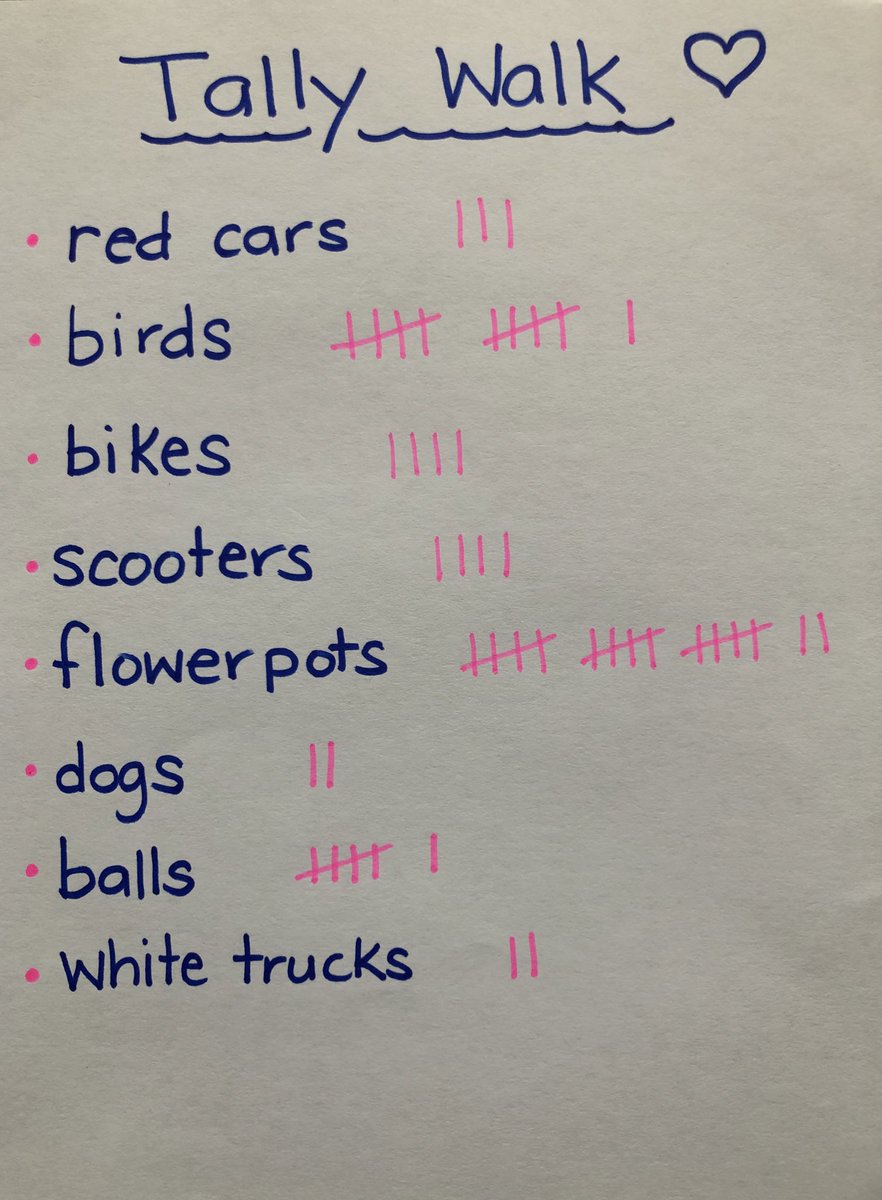 Tally Walk ♡
• red cars |||
• birds 卌 卌 |
• bikes ||||
• scooters ||||
• flowerpots 卌 卌 卌 ||
• dogs ||
• balls 卌 |
• white trucks ||